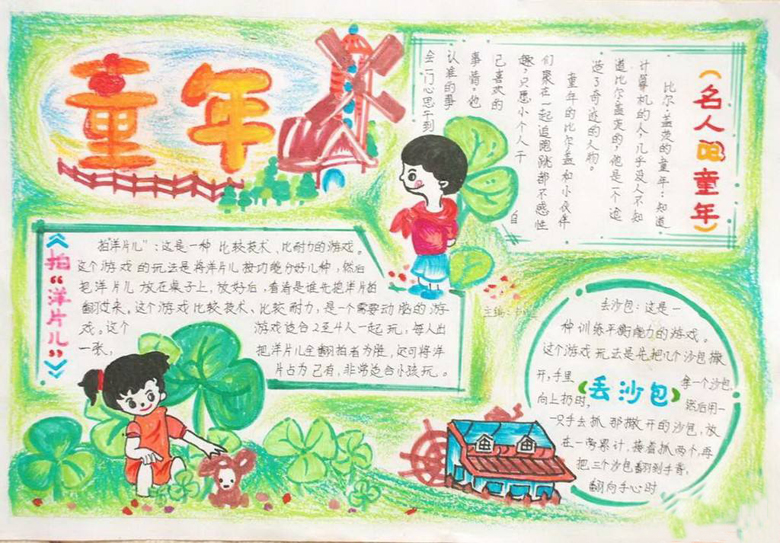 童年
《名人的童年》
比尔·盖茨的童年：知道
计算机的人，几乎没人不知
道比尔·盖茨的，他是一个造
造了奇迹的人物。
童年的比尔·盖和小伙伴
们聚在一起追跑跳都不感性
趣，只愿小个人干自
己喜欢的
事情。他
认准的事
会一门心思午到
《拍“洋片儿”》
拍洋片儿”：这是一种比较技术、比耐力的游戏。
这个游戏的玩法是将洋片儿按功能分好几种，然后
把洋片儿放在桌子上，放好后，看看是谁先把洋片拍
翻过来。这个游戏比较技术、比较耐力，是一个需要动脑的游
戏。这个游戏适合2至十人一起玩，每人出
一张。把洋片全翻拍者为胜，还可将洋
片占为己有，非常适合小孩玩。
主编：
《丢沙包》
丢沙包：这是一
种训练平衡能力的游戏。
这个游戏玩法是先把几个沙包撒
开，手里拿一个沙包，
向上扔时，然后用一
只手去抓那撒开的沙包，放
在一旁累计，接着抓两个，再
把三个沙包翻到手背，
翻向手心时